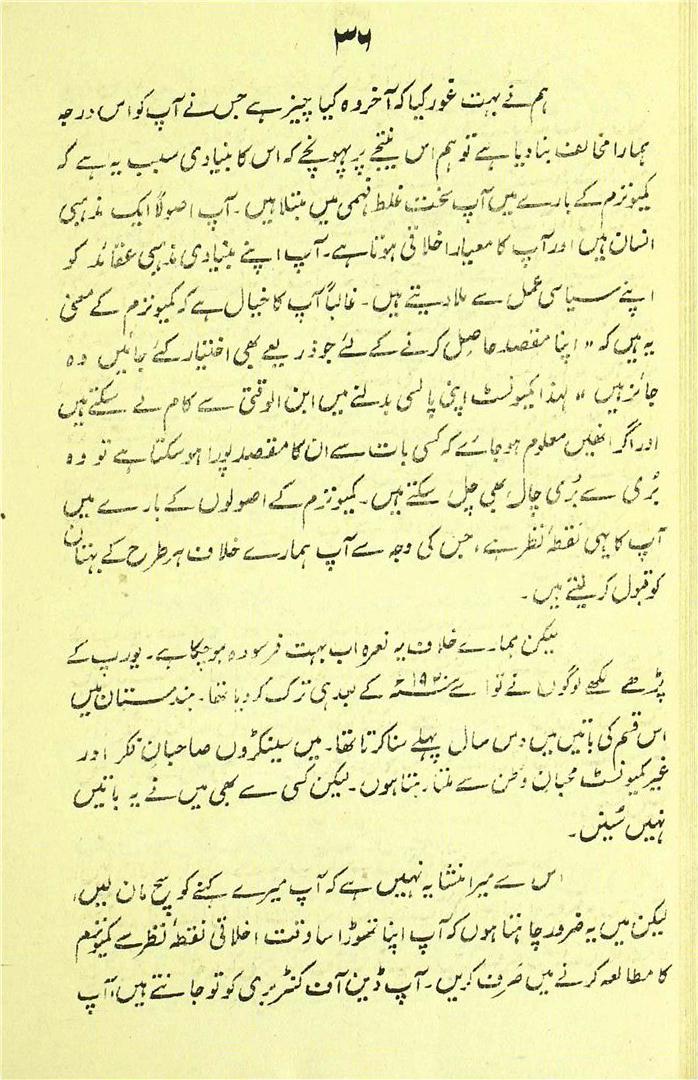 ۳۶
ہم نے بہت غور کیا کہ آخر وہ کیا چیز ہے جس نے آپ کو اس درجہ
ہمارا مخالف بنا دیا ہے تو ہم اس نتیجے پر پہونچے کہ اس کا بنیادی سبب یہ ہے کہ
کمیونزم کے بارے میں آپ سخت غلط فہمی میں مبتلا ہیں۔ آپ اصولاً ایک مذہبی
انسان ہیں اور آپ کا معیار اخلاقی ہوتا ہے۔ آپ اپنے بنیادی مذہبی عقائد کو
اپنے سیاسی عمل سے ملا دیتے ہیں۔ غالباً آپ کا خیال ہے کہ کمیونزم کے معنی
یہ ہیں کہ "اپنا مقصد حاصل کرنے کے لئے جو ذریعے بھی اختیار کئے جائیں وہ
جائز ہیں" لہذا کمیونسٹ اپنی پالسی بدلنے میں ابن الوقتی سے کام لے سکتے ہیں
اور اگر انھیں معلوم ہو جائے کہ کسی بات سے ان کا مقصد پورا ہو سکتا ہے تو وہ
بُری سے بُری چال بھی چل سکتے ہیں۔ کمیونزم کے اصولوں کے بارے میں
آپ کا یہی نقطۂ نظر ہے، جس کی وجہ سے آپ ہمارے خلاف ہر طرح کے بہتان
کو قبول کر لیتے ہیں۔
لیکن ہمارے خلاف یہ نعرہ اب بہت فرسودہ ہو چکا ہے۔ یورپ کے
پڑھے لکھے لوگوں نے تو اسے ۱۹۲۰ء کے بعد ہی ترک کر دیا تھا۔ ہندستان میں
اس قسم کی باتیں میں دس سال پہلے سنا کرتا تھا۔ میں سینکڑوں صاحبان فکر اور
غیر کمیونسٹ محبان وطن سے ملتا رہتا ہوں۔ لیکن کسی سے بھی میں نے یہ باتیں
نہیں سُنیں۔
اس سے میرا منشا یہ نہیں ہے کہ آپ میرے کہنے کو سچ مان لیں،
لیکن میں یہ ضرور چاہتا ہوں کہ آپ اپنا تھوڑا سا وقت اخلاقی نقطۂ نظر سے کمیونزم
کا مطالعہ کرنے میں صَرف کریں۔ آپ ڈین آف کنٹربری کو تو جانتے ہیں، آپ